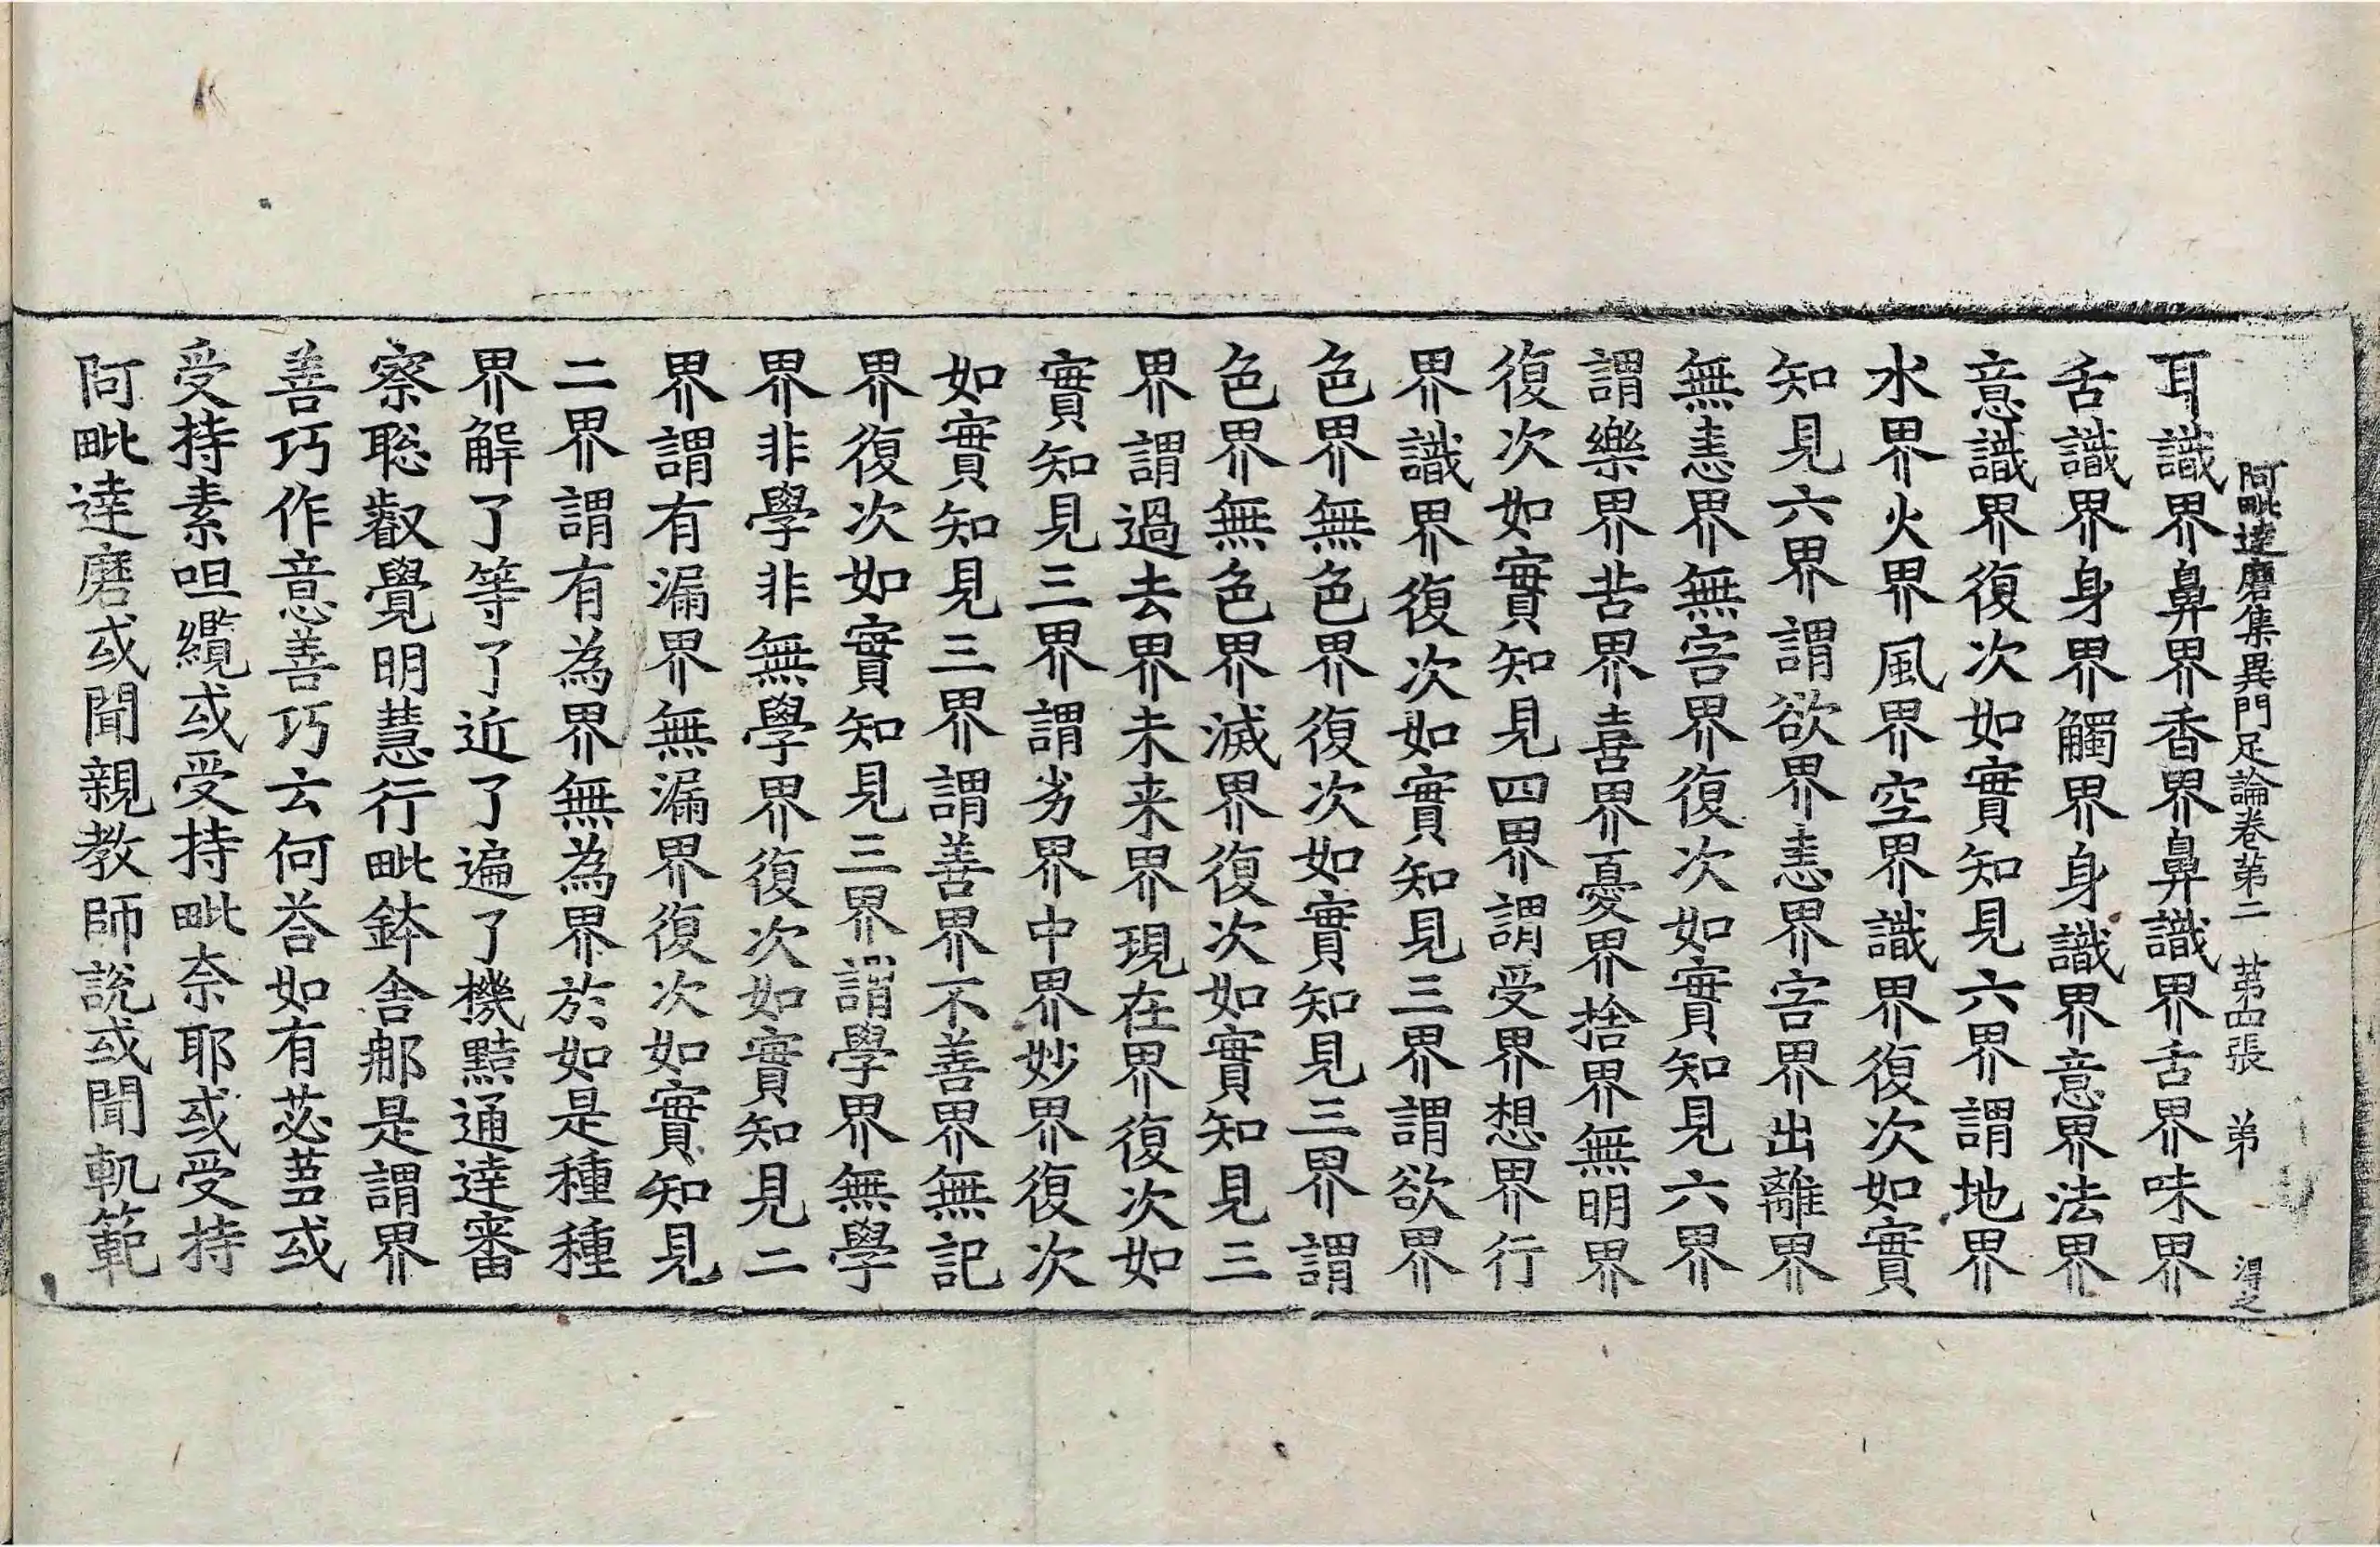 阿毗達磨集異門足論卷第二 第四張 弟 淂之
耳識界鼻界香界鼻識界舌界味界
舌識界身界觸界身識界意界法界
意識界復次如實知見六界謂地界
水界火界風界空界識界復次如實
知見六界謂欲界恚界害界出離界
無恚界無害界復次如實知見六界
謂樂界苦界喜界憂界捨界無明界
復次如實知見四界謂受界想界行
界識界復次如實知見三界謂欲界
色界無色界復次如實知見三界謂
色界無色界滅界復次如實知見三
界謂過去界未来界現在界復次如
實知見三界謂劣界中界妙界復次
如實知見三界謂善界不善界無記
界復次如實知見三界謂學界無學
界非學非無學界復次如實知見二
界謂有漏界無漏界復次如實知見
二界謂有為界無為界於如是種種
界解了等了近了遍了機黠通達審
察聡叡覺明慧行毗鉢舍那是謂界
善巧作意善巧云何荅如有苾芻或
受持素呾纜或受持毗奈耶或受持
阿毗達磨或聞親教師說或聞軌範